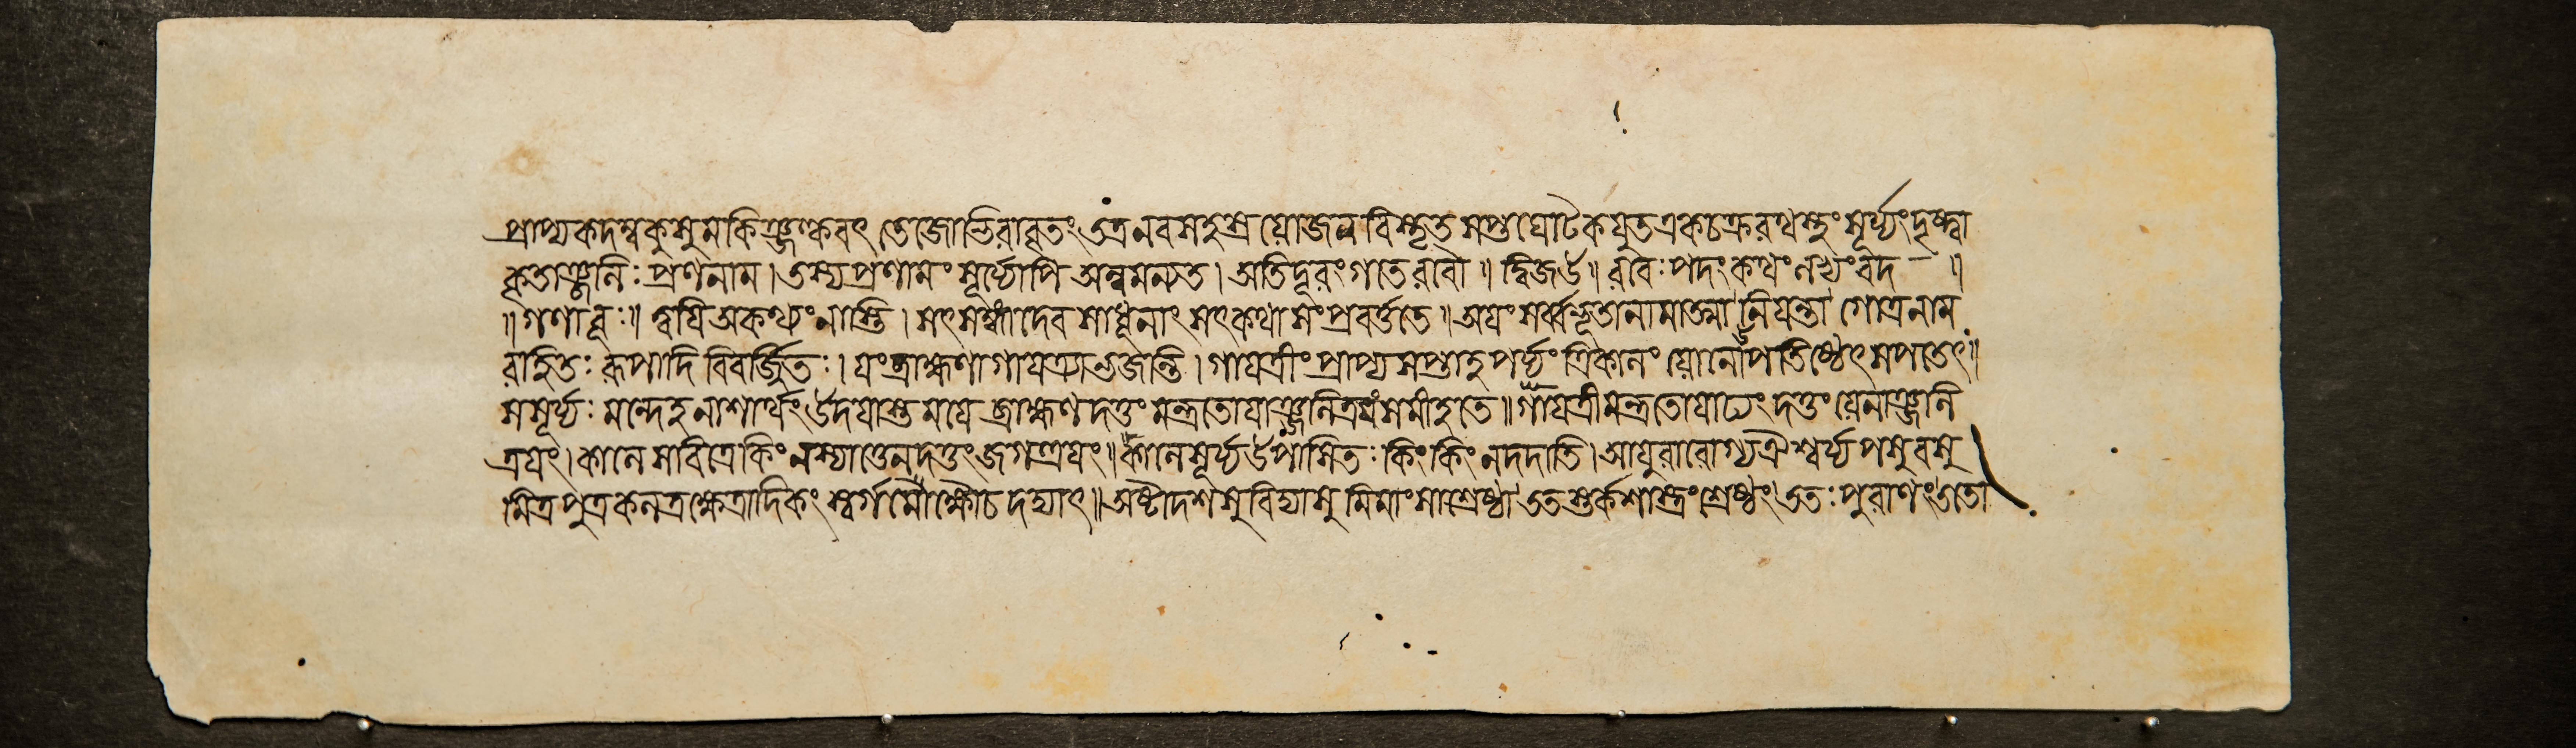 প্রাপ্যকদম্বকুসুমকিঞ্জল্কবৎ তেজোভিরাবৃতং তত্র নবসহস্রযোজন বিস্তৃত সপ্তঘোটকযুত একচক্ররথস্তং সূর্য্যং দৃষ্ট্বা
কৃতাঞ্জলিঃ প্রণনাম । তস্য প্রণামং সূর্য্যোপি অন্বমন্যত । অতিদূরং গতে রবৌ ॥ দ্বিজউ ॥ রবেঃ পদং কথং লভ্যং বদ ॥
॥ গণাবৃঃ ॥ ত্বয়ি অকথ্যং নাস্তি । সৎসঙ্গাদেব সাধূনাং সৎকথা সংপ্রবর্ত্ততে ॥ অয়ং সর্ব্বভূতানামাত্মা নিয়ন্তা গোত্রনাম
রহিতঃ রূপাদি বিবর্জ্জিতঃ । যং ব্রাহ্মণা গায়ত্র্যা ভজন্তি । গায়ত্রীং প্রাপ্য সপ্তাহপর্য্যং ত্রিকালং যো নোপতিষ্ঠেৎ স পতেৎ ॥
স সূর্য্যঃ মন্দেহনাশার্থং উদয়াস্তময়ে ব্রাহ্মণদত্তং মন্ত্রতোয়াঞ্জলিত্রয়ং সমীহতে ॥ গায়ত্রীমন্ত্রতোয়াঢ্যং দত্তং যেনাঞ্জলি
ত্রয়ং । কালে সবিত্রে কিং ন স্যাত্তেন দত্তং জগত্রয়ং ॥ কালে সূর্য্য উপাসিতঃ কিং কিং ন দদাতি । আয়ুরারোগ্য ঐশ্বর্য্য পসু বসু
মিত্র পুত্র কলত্র ক্ষেত্রাদিকং স্বর্গমোক্ষৌচ দদ্যাৎ ॥ অষ্টাদশসু বিদ্যাসু মিমাংসা শ্রেষ্ঠা ততস্তর্কশাস্ত্রং শ্রেষ্ঠং ততঃ পুরাণং ততো